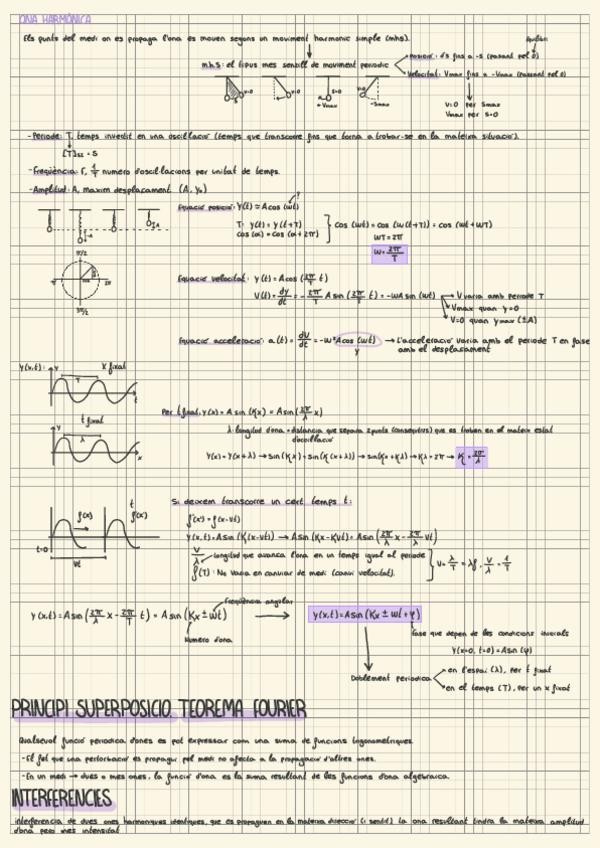 ONA HARMÒNICA
Els punts del medi on es propaga l'ona es moven segons un moviment harmonic simple (mhs).
Equilibri
m.h.s: el tipus mes senzill de moviment periodic
Posició: d's fins a -s (passant pel 0)
Velocitat: Vmax fins a -Vmax (passant pel 0)
V=0
V=0
-S
←Vmax
-Smax
V=0 per Smax
Vmax per S=0
-Periode: T, temps invertit en una oscil·lació (temps que transcorre fins que torna a trobar-se en la mateixa situació).
[T]SI = S
-Freqüència: f, 1/T numero d'oscil·lacions per unitat de temps.
-Amplitud: A, maxim desplaçament (A, y₀)
Equació posició: Y(t) = A cos (wt)
T: y(t) = y(t+T)
cos (α) = cos (α+2π)
cos (wt) = cos (w(t+T)) = cos (wt+wT)
wT=2π
w=2π/T
π/2
π
3π/2
Equació velocitat: y(t) = A cos (2π/T t)
V(t) = dy/dt = -2π/T A sin (2π/T t) = -wA sin (wt)
V varia amb periode T
Vmax quan y=0
V=0 quan ymax (±A)
Equació acceleració: a(t) = dV/dt = -w²A cos (wt) → L'acceleració varia amb el periode T en fase
y
amb el desplaçament
Y(x,t):
y
x fixat
T
t
t fixat
y
λ
x
Per t fixat, y(x) = A sin (Kx) = A sin (2π/λ x)
λ longitud d'ona = distancia que separa 2 punts (consecutius) que es troben en el mateix estat
d'oscil·lació
Y(x) = Y(x+λ) → sin (Kx) = sin (K(x+λ)) → sin(Kx+Kλ) → Kλ = 2π → K = 2π/λ
Si deixem transcorre un cert temps t:
t
f(x)
f(x)
t=0
Vt
f(x) = f(x-Vt)
y(x,t) = A sin (K(x-Vt)) → A sin (Kx-KVt) = A sin (2π/λ x - 2π/λ Vt)
V/λ → longitud que avança l'ona en un temps igual al periode
f(T): No varia en canviar de medi (canvi velocitat).
V = λ/T = λf, V/λ = 1/T
Freqüència angular
y(x,t) = A sin (2π/λ x - 2π/T t) = A sin (Kx ± wt) → y(x,t) = A sin (Kx ± wt + φ)
Numero d'ona
fase que depen de les condicions inicials
Y(x=0, t=0) = A sin (φ)
Doblement periodica
en l'espai (λ), per t fixat
en el temps (T), per un x fixat
PRINCIPI SUPERPOSICIÓ. TEOREMA FOURIER
Qualsevol funció periodica d'ones es pot expressar com una suma de funcions trigonometriques.
-El fet que una pertorbació es propagui pel medi no afecta a la propagació d'altres ones.
-En un medi → dues o mes ones, la funció d'ona es la suma resultant de les funcions d'ona algebraica.
INTERFERENCIES
interferencia de dues ones harmoniques identiques, que es propaguen en la mateixa direcció (i sentit) La ona resultant tindra la mateixa amplitud
d'ona però mes intensitat